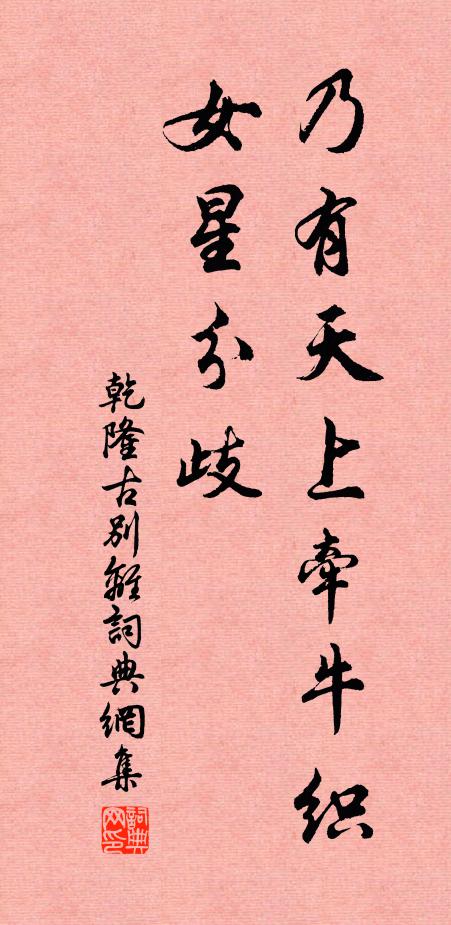 乃有天上牽牛织
女星分歧
乾隆古别離詞典網集
詞典网印